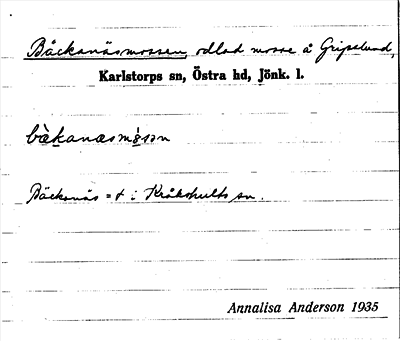 Bäckanäsmossen, odlad mosse å Gripslund,
Karlstorps sn, Östra hd, Jönk. l.
bèkanæsmòsən
Bäckanäs = t i Kråkshults sn.
Annalisa Anderson 1935